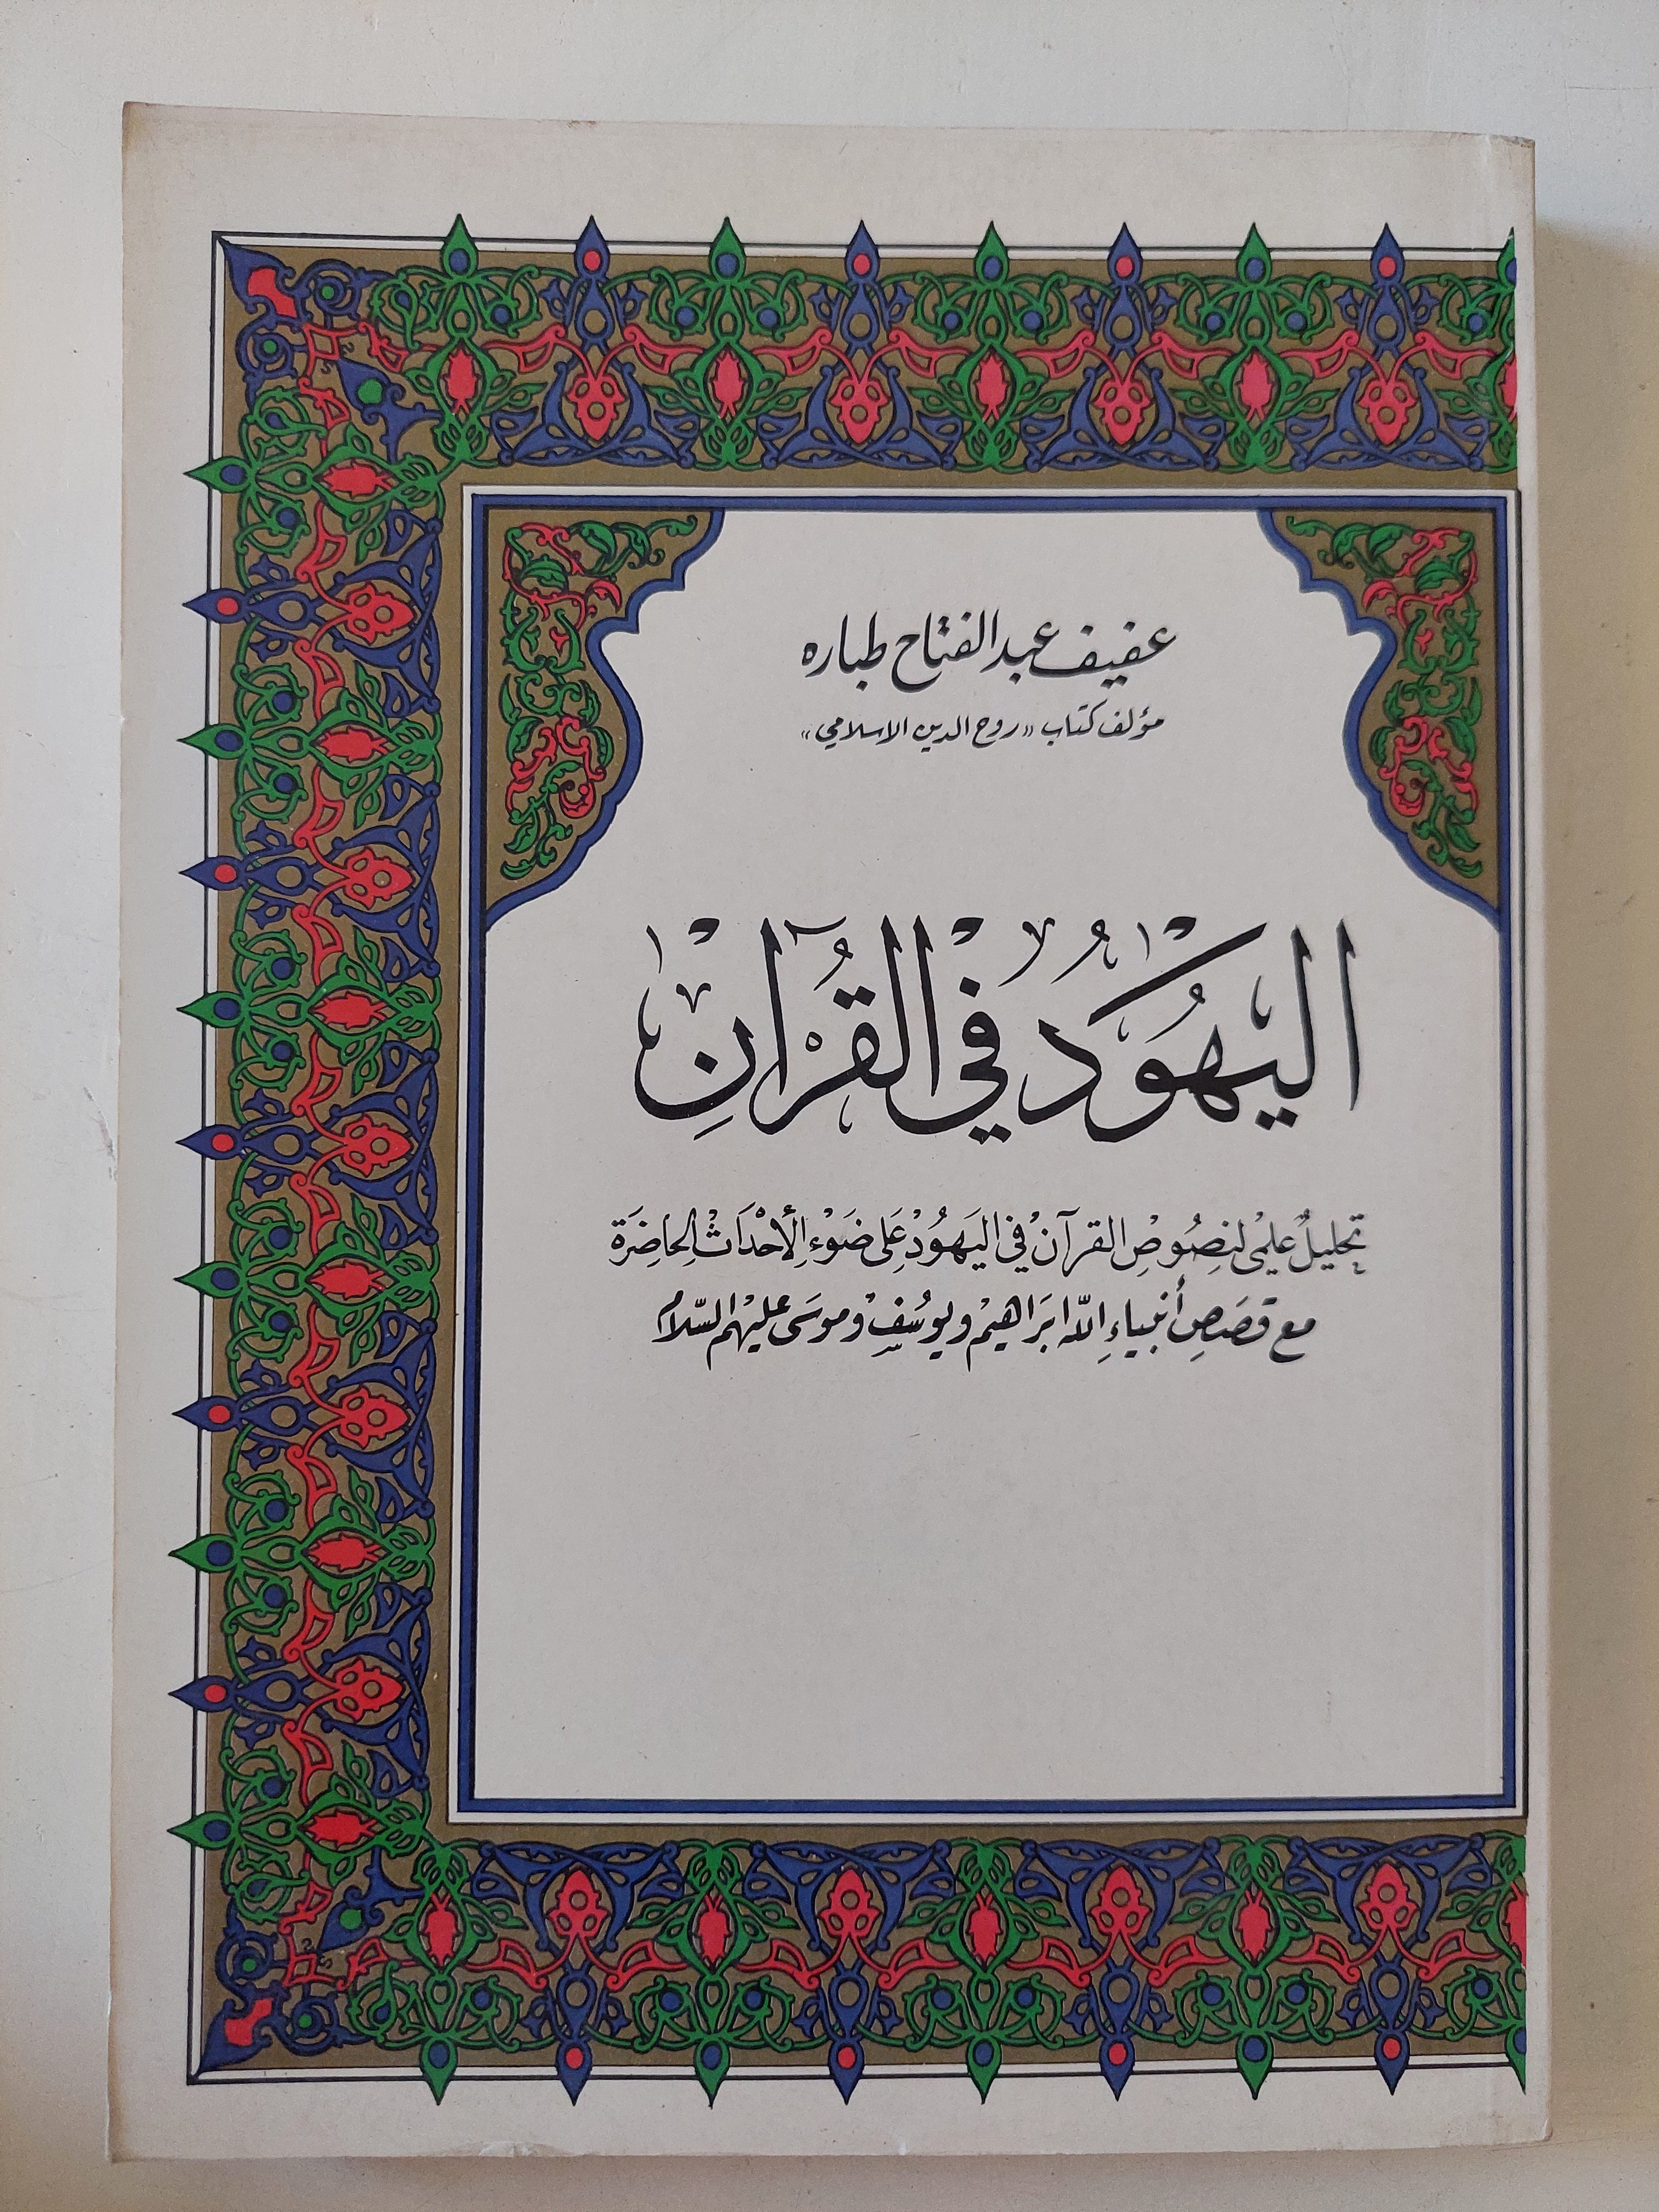 عفيف عبد الفتاح طباره
مؤلف كتاب «روح الدين الاسلامي»
اليَهُودُ في القُرآنِ
تحليلٌ علميْ لنصُوصِ القرآنْ في اليَهُودْ عَلى ضَوْءِ الأحْدَاثْ الحاضِرَة
مع قصَصِ أنبياءِ اللّه ابرَاهيمْ ويوسُفْ وموسَى عليهم السّلام